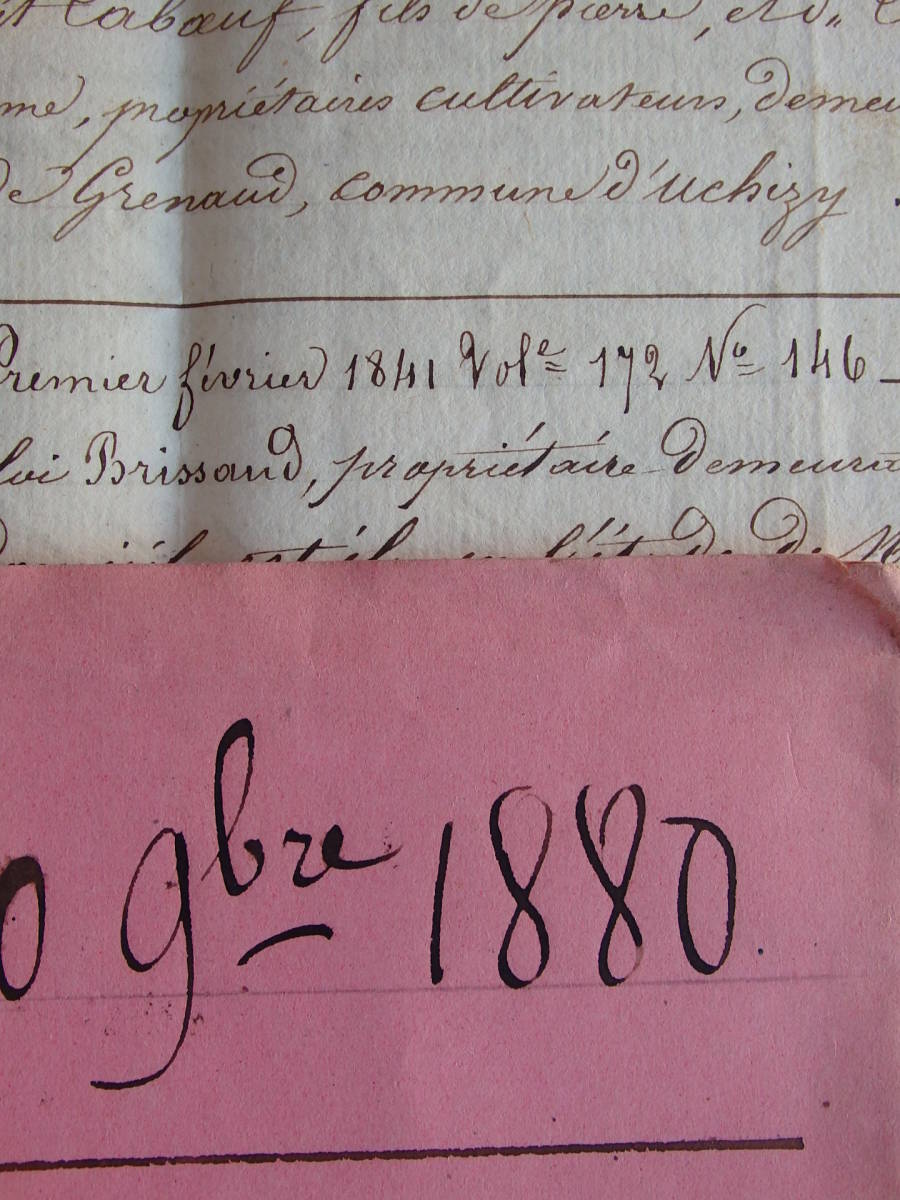 Labœuf, fils de pierre, et d.lle
me, propriétaires cultivateurs, demeu
de Grenaud, commune d'Uchizy.
Premier février 1841 Vol.e 172 N.o 146
loi Brissaud, propriétaire demeura
0 9bre 1880.